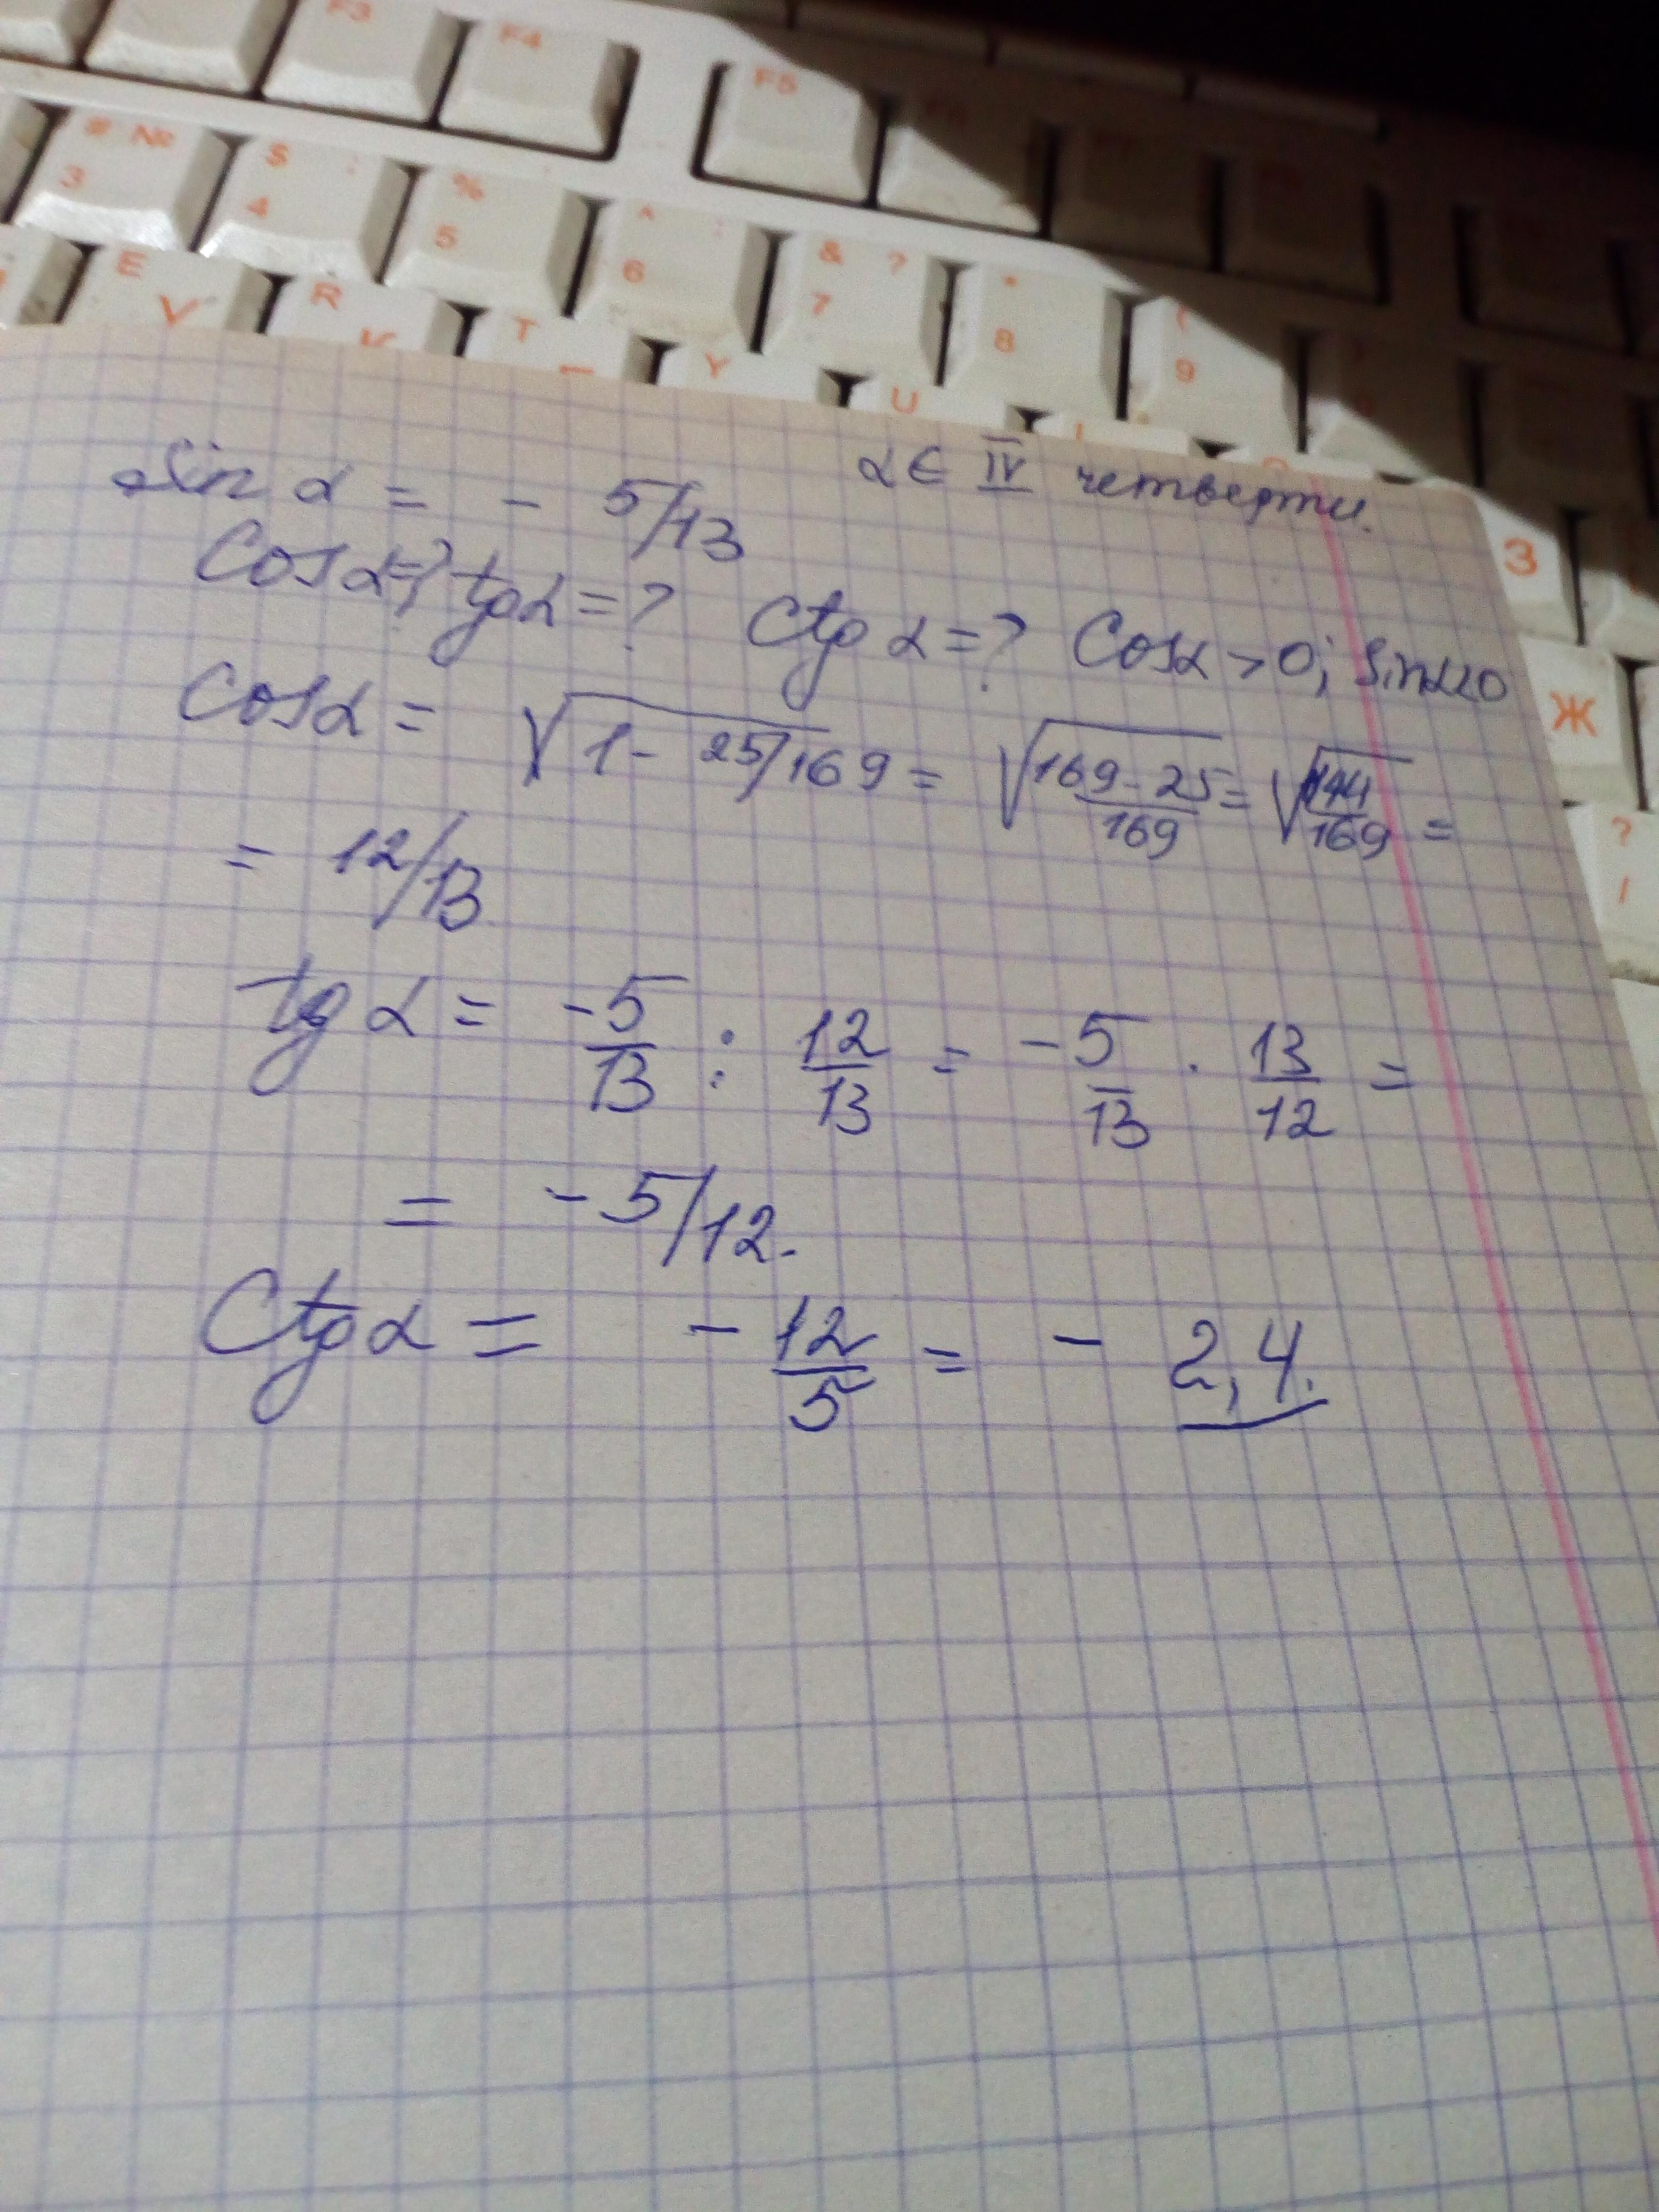 F3 F4 F5
# № 3 $ ; 4 % 5 ^ : 6 & ? 7 * 8 ( 9
E У R К T Y U
З
Ж
? /
Sin α = - 5/13 α ∈ IV четверти.
Cosα=? tgα=? Ctgα=? Cosα>0; Sinα<0
Cosα = √(1 - 25/169) = √((169-25)/169) = √(144/169) =
= 12/13
tgα = -5/13 : 12/13 = -5/13 · 13/12 =
= -5/12.
Ctgα = - 12/5 = - 2,4.